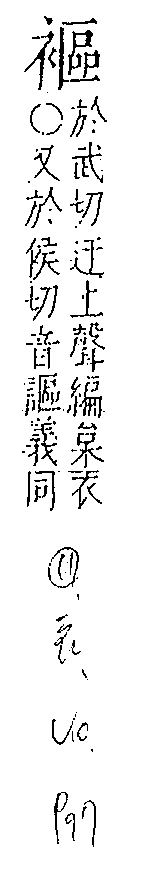 褔
於武切迃上聲編枲衣
〇又於侯切音謳義同
⑪
衣、
UO.
Pg7